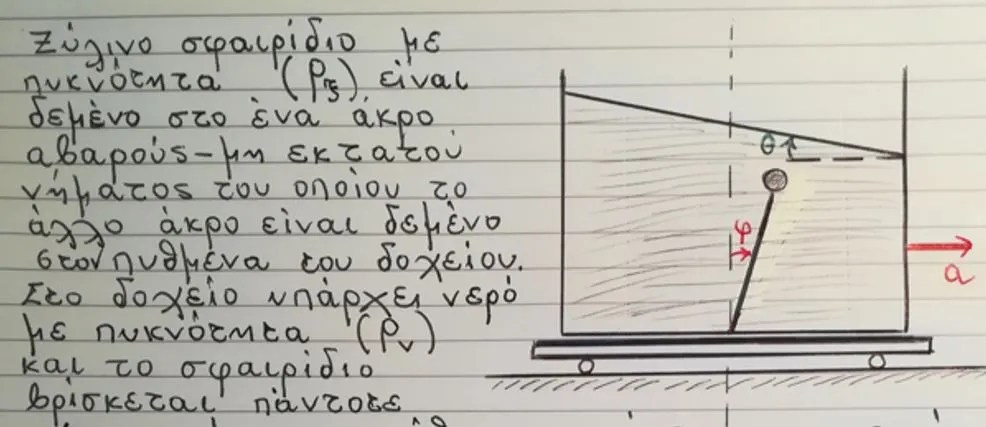 Ξύλινο σφαιρίδιο με
πυκνότητα (ρξ) είναι
δεμένο στο ένα άκρο
αβαρούς-μη εκτατού
νήματος του οποίου το
άλλο άκρο είναι δεμένο
στον πυθμένα του δοχείου.
Στο δοχείο υπάρχει νερό
με πυκνότητα (ρν)
και το σφαιρίδιο
βρίσκεται πάντοτε
θ
φ
a